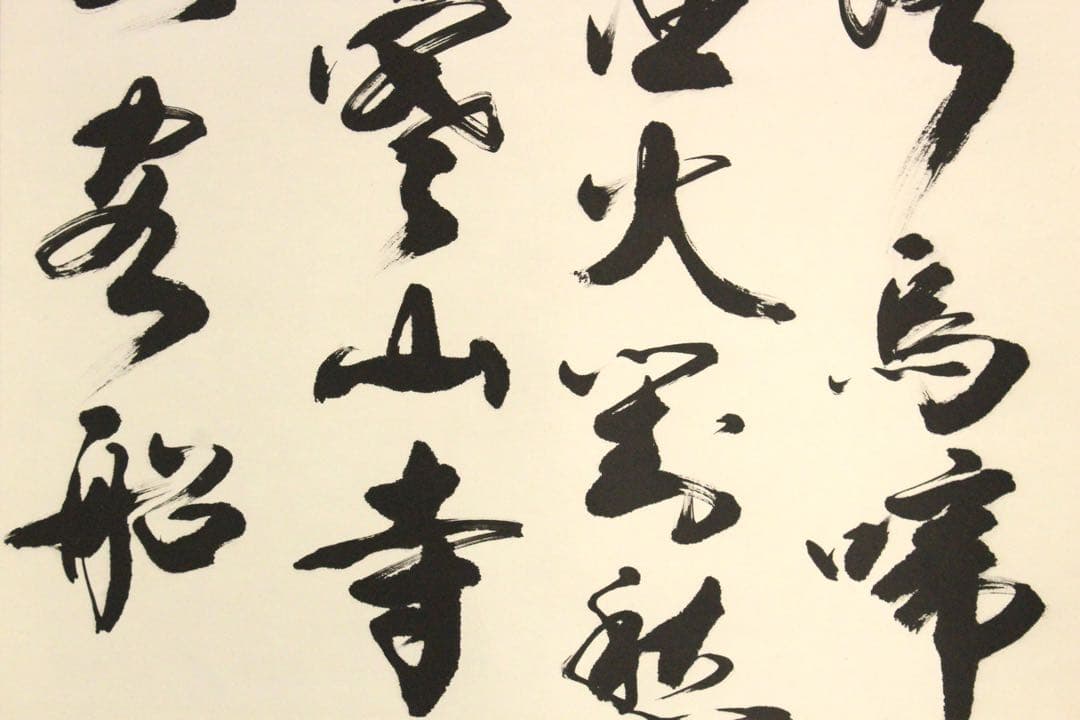 烏啼
火對愁
寒山寺
客船